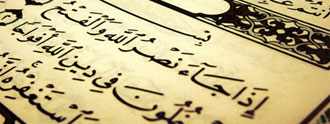 بِسْ
إِذَا جَآءَ نَصْرُ اللَّهِ وَالْفَتْحُ
خُلُونَ فِي دِينِ اللَّهِ أَفْوَاجًا
اسْتَغْفِرْهُ